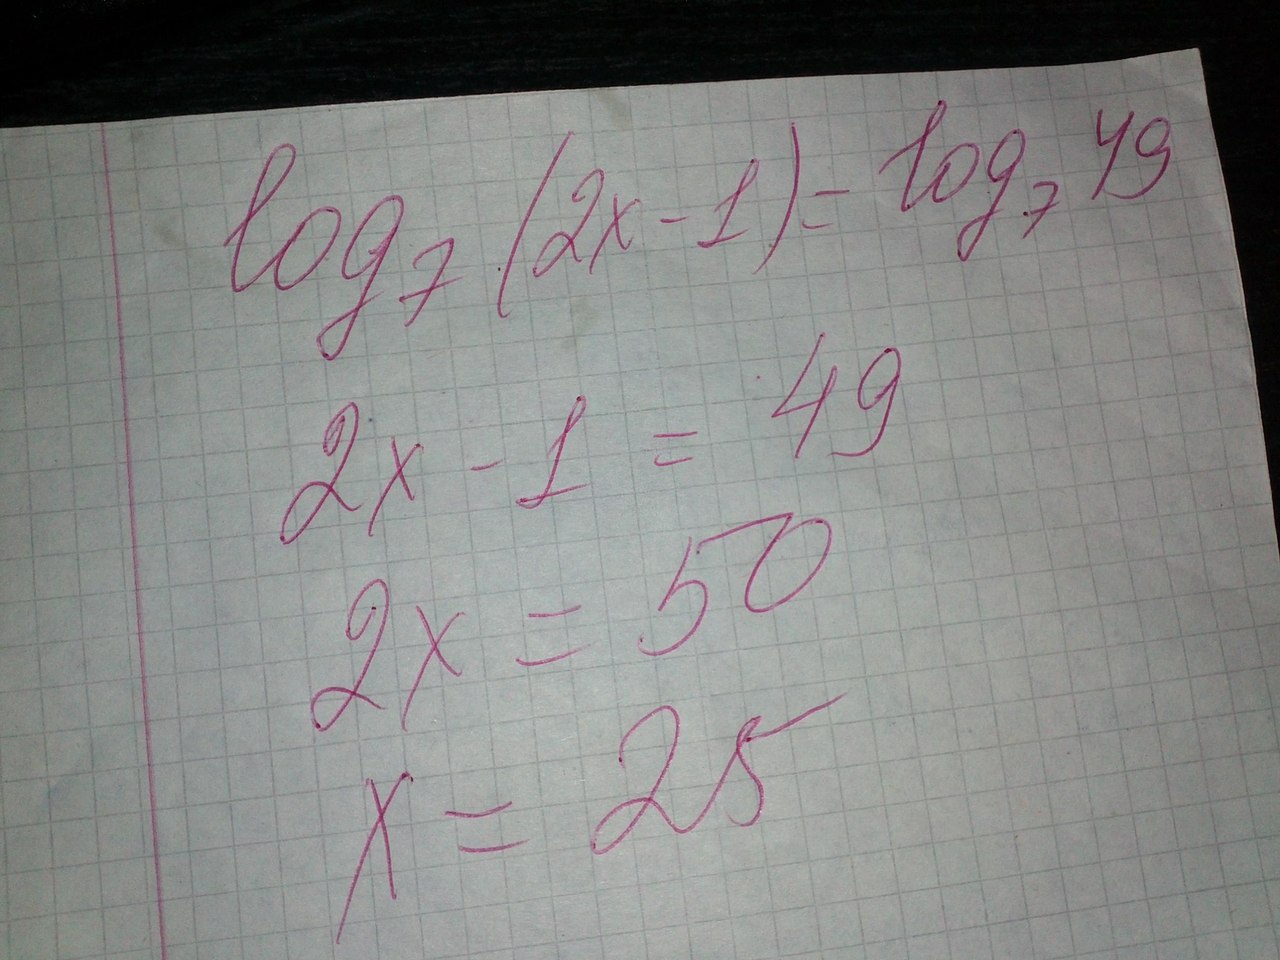 log₇ (2x - 1) = log₇ 49
2x - 1 = 49
2x = 50
x = 25